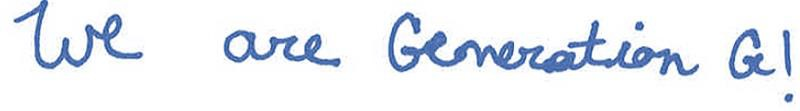 We are Generation G!